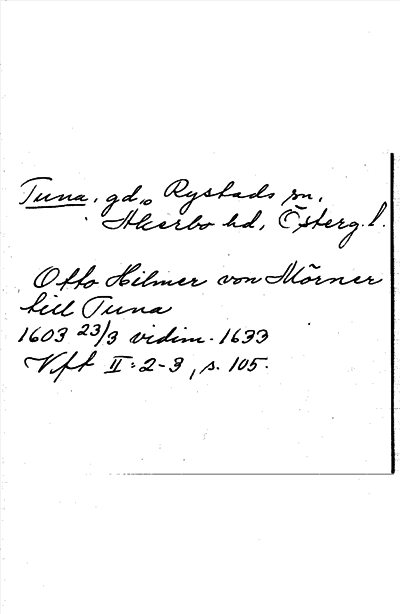 Tuna, gd., Rystads sn,
Åkerbo hd, Österg. l.
Otto Hilmer von Mörner
till Tuna
1603 23/3 vidim. 1633
Vft II: 2-3, s. 105.